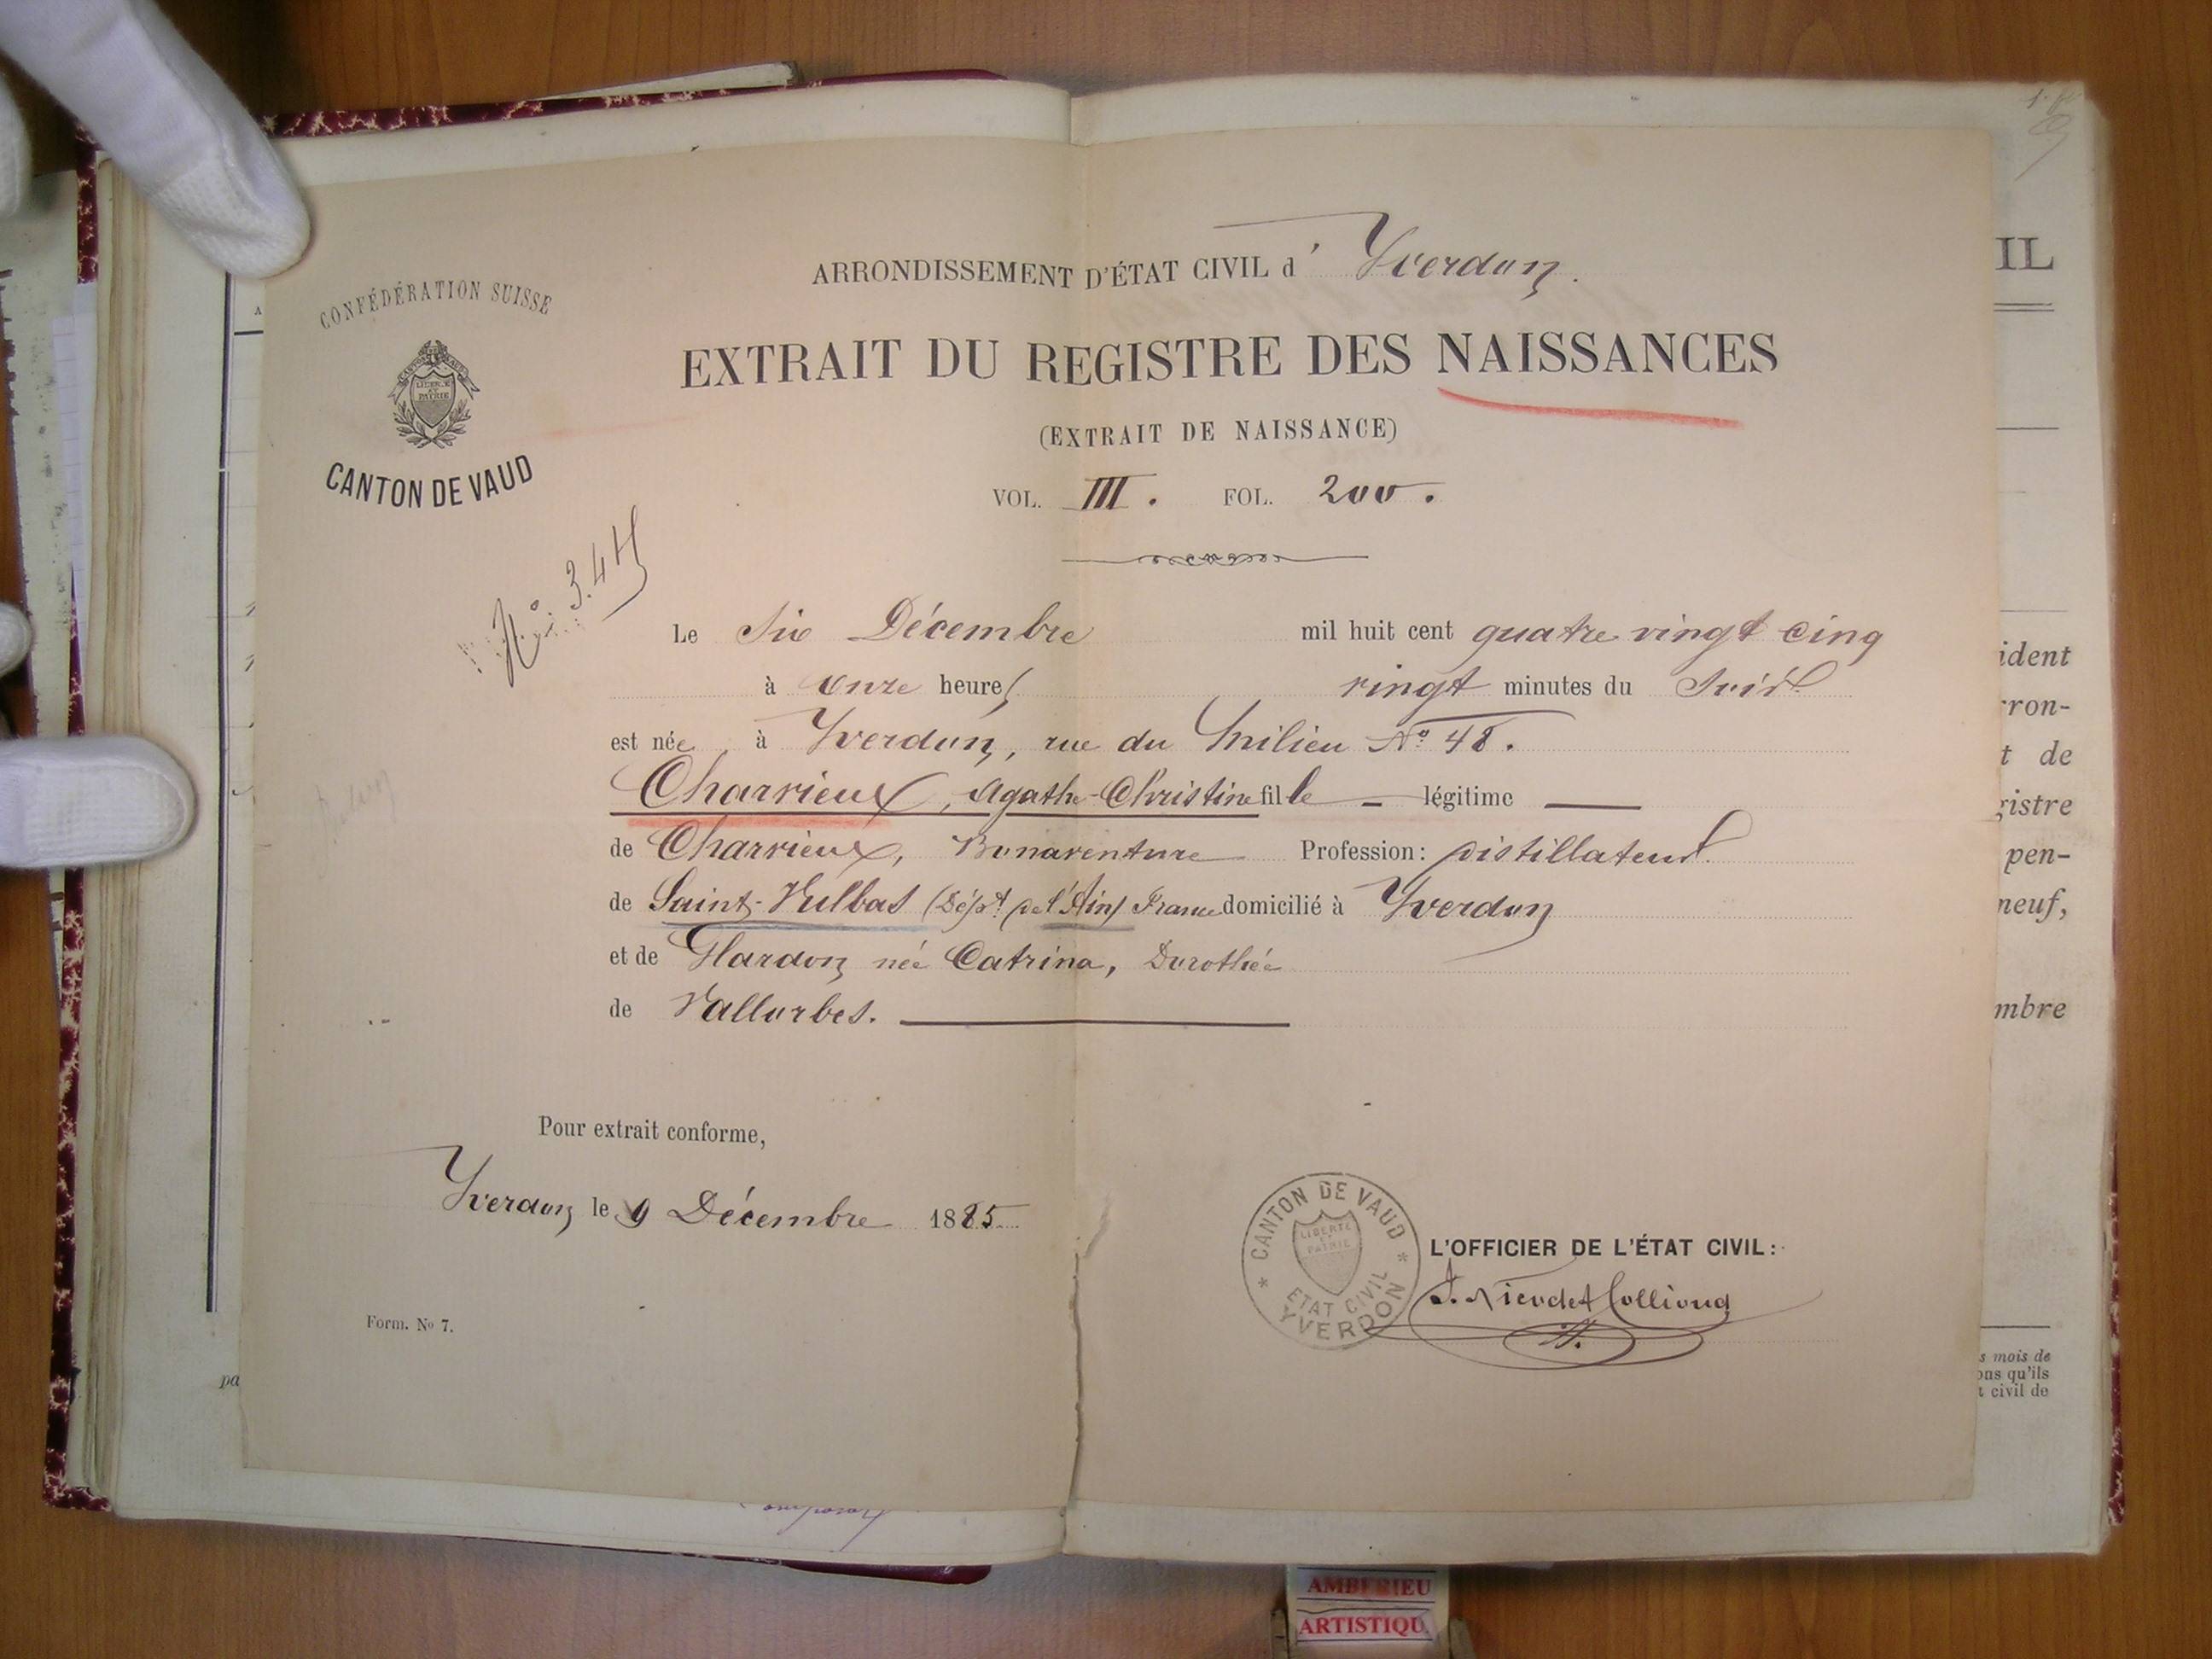 CONFÉDÉRATION SUISSE
LIBERTÉ ET PATRIE
CANTON DE VAUD
ARRONDISSEMENT D'ÉTAT CIVIL d' Yverdon.
EXTRAIT DU REGISTRE DES NAISSANCES
(EXTRAIT DE NAISSANCE)
VOL. III. FOL. 200.
Le Six Décembre mil huit cent quatre vingt cinq
à onze heures vingt minutes du Soir
est née, à Yverdon, rue du Milieu No 48.
Charrieux, Agathe-Christine fille légitime
de Charrieux, Bonaventure Profession: distillateur
de Saint-Vulbas (Dépt de l'Ain) France domicilié à Yverdon
et de Glardon née Catrina, Dorothée
de Vallorbes.
Pour extrait conforme,
Yverdon le 9 Décembre 1885
CANTON DE VAUD
LIBERTÉ ET PATRIE
ETAT CIVIL
YVERDON
L'OFFICIER DE L'ÉTAT CIVIL:
Form. No 7.
IL
ident
rron-
t de
gistre
pen-
neuf,
mbre
s mois de
ons qu'ils
t civil de
pa
AMBERIEU
ARTISTIQU